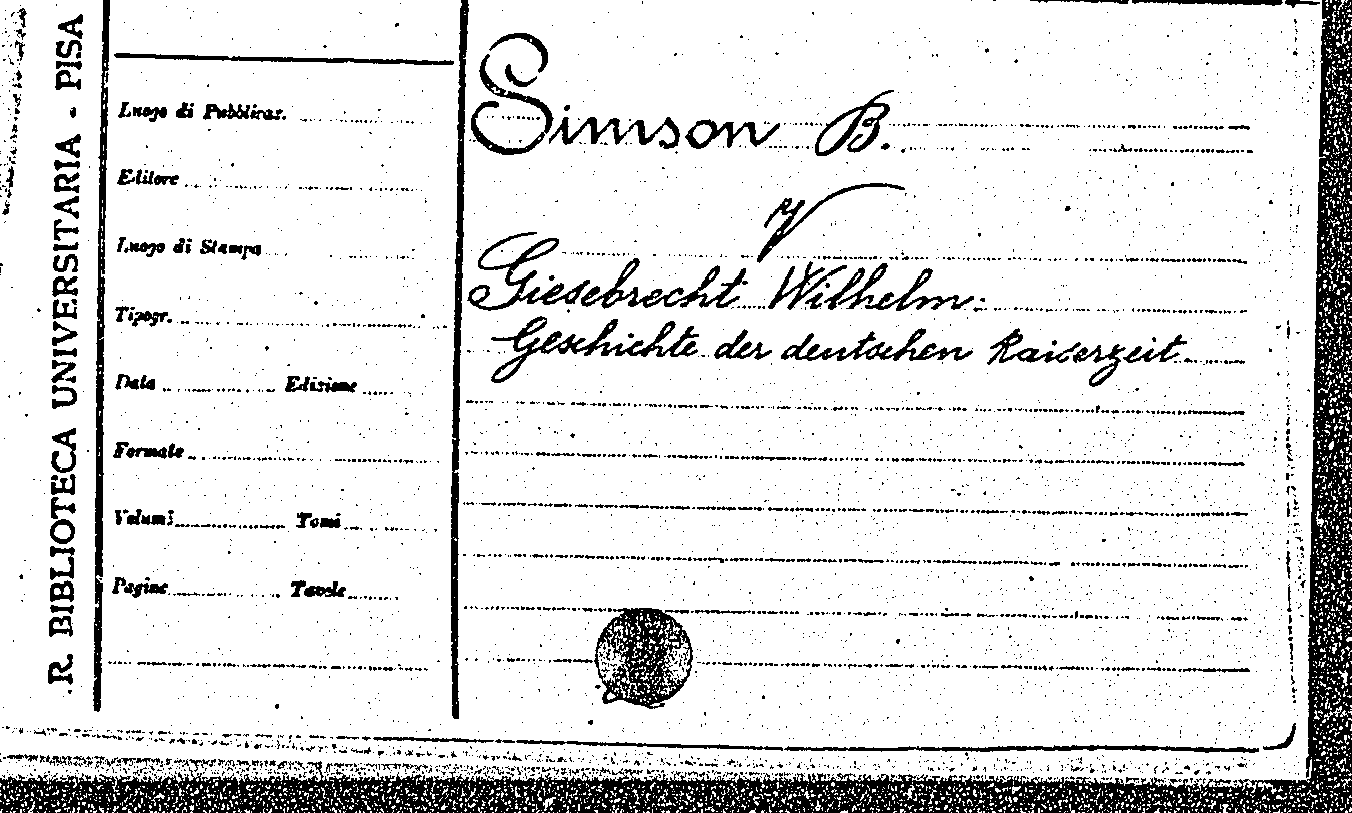 R. BIBLIOTECA UNIVERSITARIA - PISA
Luogo di Pubblicaz.
Editore
Luogo di Stampa
Tipogr.
Data Edizione
Formato
Volumi Tomi
Pagine Tavole
Simson B.
V
Giesebrecht Wilhelm:
Geschichte der deutschen Kaiserzeit